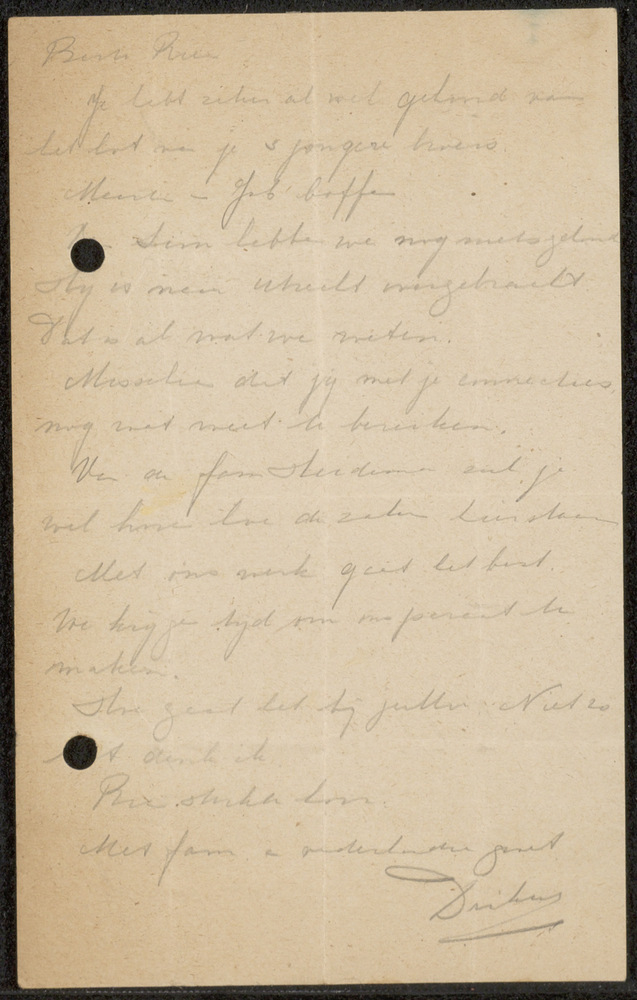 Beste Rien
Je hebt zeker al wel gehoord van
het lot van je 3 jongere broers.
Meine - Job boffe
Siem hebben we nog niets gehoord
Hij is naar Utrecht overgebracht
Dat is al wat we weten.
Misschien dat jij met je connecties
nog wat weet te bereiken.
Van de fam zul je
wel horen hoe de zaken hier staan
Met ons werk gaat het best.
We krijgen tijd om ons paraat te
maken.
Hoe gaat het bij jullie. Niet zo
denk ik
Rien sterkte hoor.
Met fam. vaderlandse groet
Dirkus